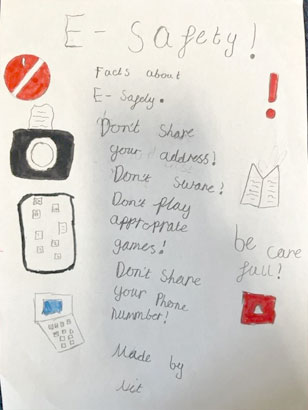 E - Safety!
Facts about
E - Safety.
Don't Share
your address!
Don't Sware!
Don't Play
approprate
games!
Don't Share
your Phone
nummber!
be care
full!
Made by